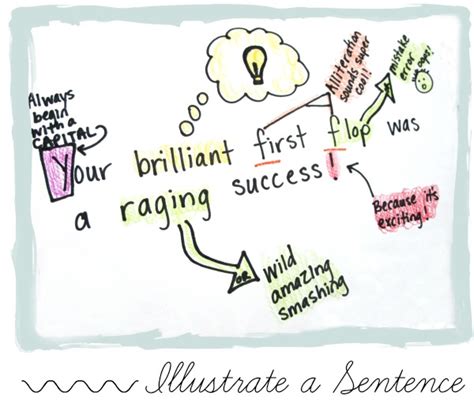 Alliteration
sounds super
cool!!
mistake
error
oops!
Always
begin
with a
CAPITAL
Your brilliant first flop was
a raging success!
Because it's
exciting!
OR
wild
amazing
smashing
Illustrate a Sentence